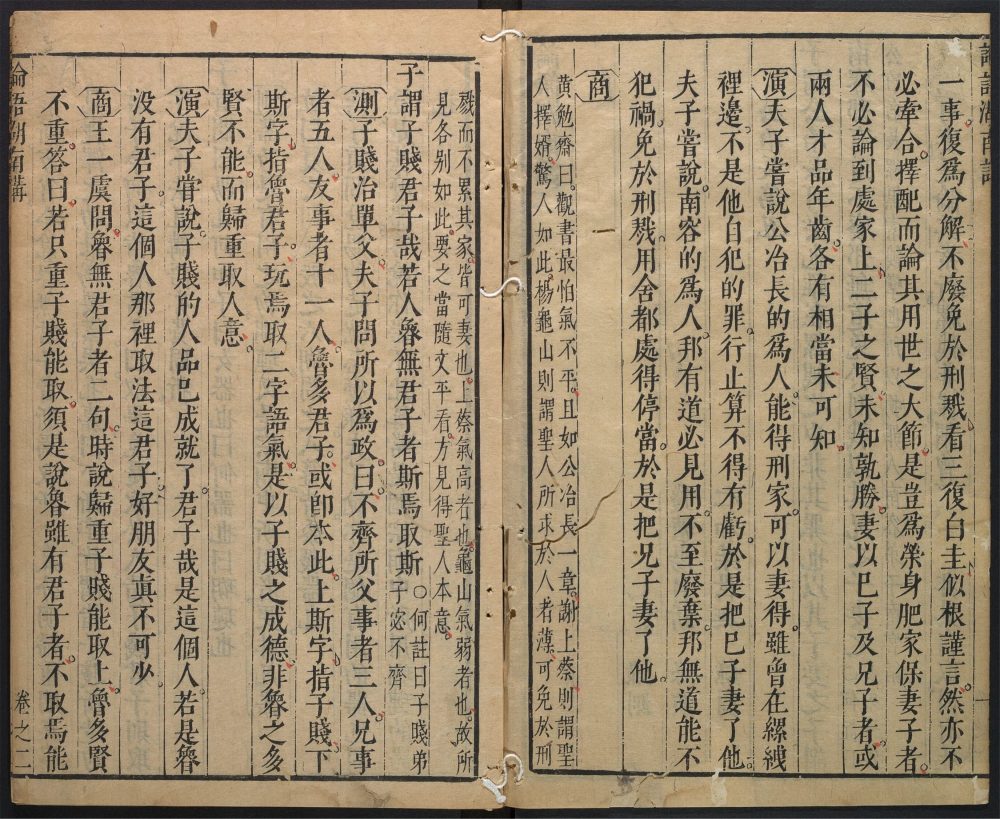 一事復爲分解不廢免於刑戮看三復白圭似根謹言然亦不
必牽合擇配而論其用世之大節是豈爲榮身肥家保妻子者
不必論到處家上二子之賢未知孰勝妻以己子及兄子者或
兩人才品年齒各有相當未可知
演夫子嘗說公冶長的爲人能得刑家可以妻得雖曾在縲絏
裡邉不是他自犯的罪行止算不得有虧於是把己子妻了他
夫子嘗說南容的爲人邦有道必見用不至廢棄邦無道能不
犯禍免於刑戮用舍都處得停當於是把兄子妻了他
商
黄勉齋曰觀書最怕氣不平且如公冶長一章謝上蔡則謂聖
人擇婿驚人如此楊龜山則謂聖人所求於人者薄可免於刑
戮而不累其家皆可妻也上蔡氣高者也龜山氣弱者也故所
見各别如此要之當隨文平看方見得聖人本意
子謂子賤君子哉若人魯無君子者斯焉取斯
○何註曰子賤弟
子宓不齊
測子賤治單父夫子問所以爲政曰不齊所父事者三人兄事
者五人友事者十一人魯多君子或卽本此上斯字指子賤下
斯字指魯君子玩焉取二字語氣是以子賤之成德非魯之多
賢不能而歸重取人意
演夫子嘗說子賤的人品已成就了君子哉是這個人若是魯
没有君子這個人那裡取法這君子好朋友眞不可少
商王一虞問魯無君子者二句時說歸重子賤能取上魯多賢
不重答曰若只重子賤能取須是說魯雖有君子者不取焉能
卷之二